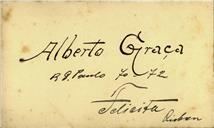 Alberto Graça
R. S. Paulo 70-72
Felicita
Ruben